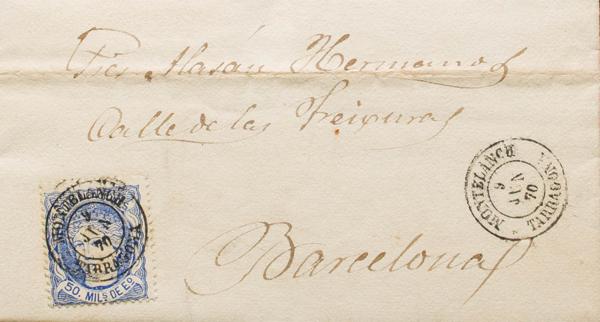 Sres Masán Hermanos
Calle de las Freixuras
Barcelona
MONTBLANCH
9
JUN
70
TARRAGONA
MONTBLANCH
9
JUN
70
TARRAGONA
50. MILS DE Eo.